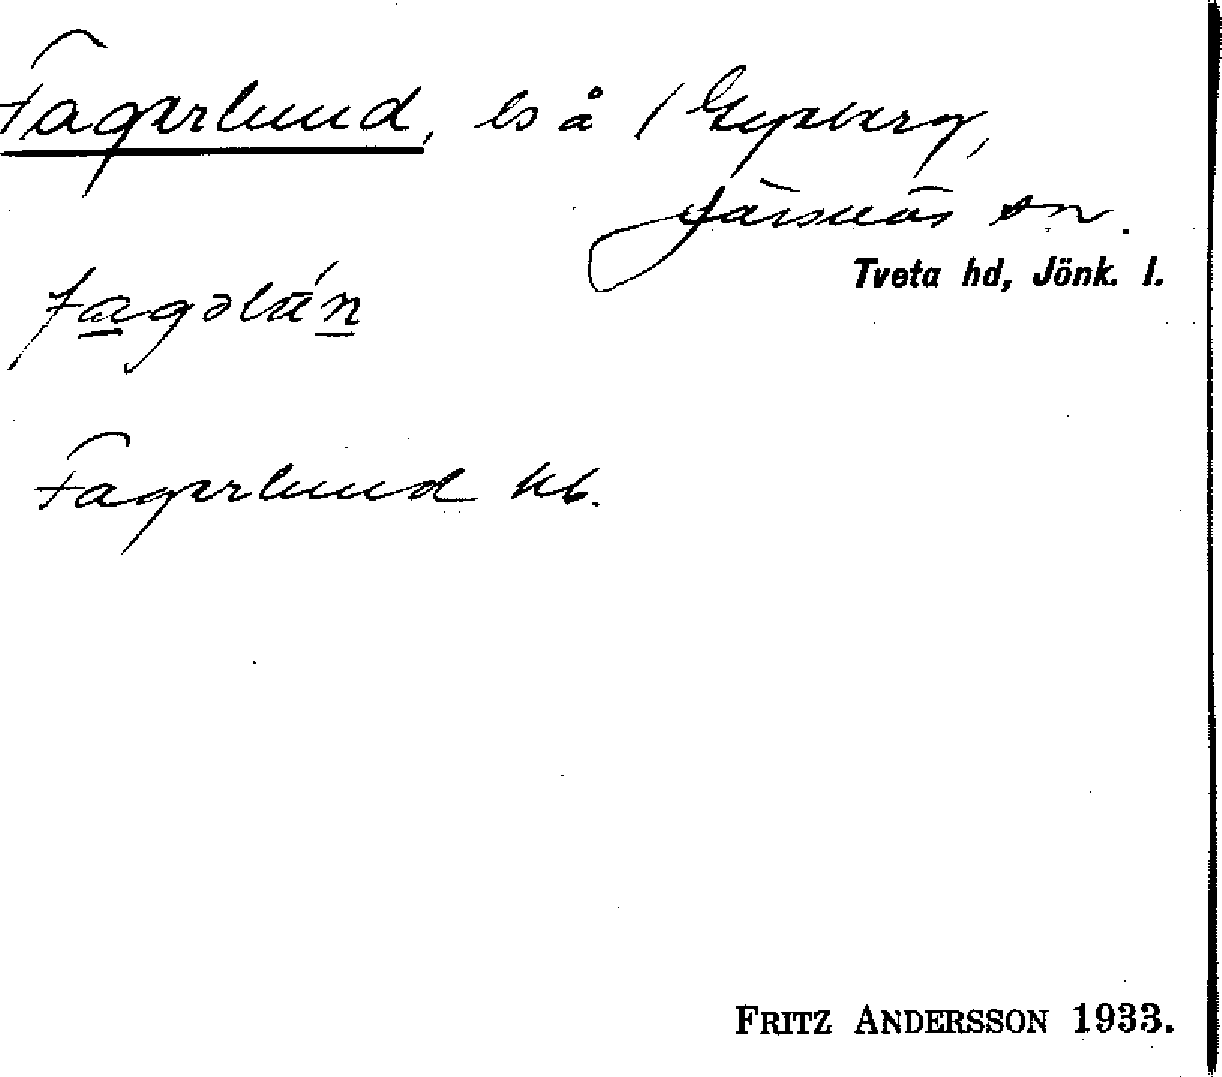 Fagerlund, ls å 1 Gripberg,
Järsnäs sn.
Tveta hd, Jönk. l.
fagəlún
Fagerlund kb.
FRITZ ANDERSSON 1933.